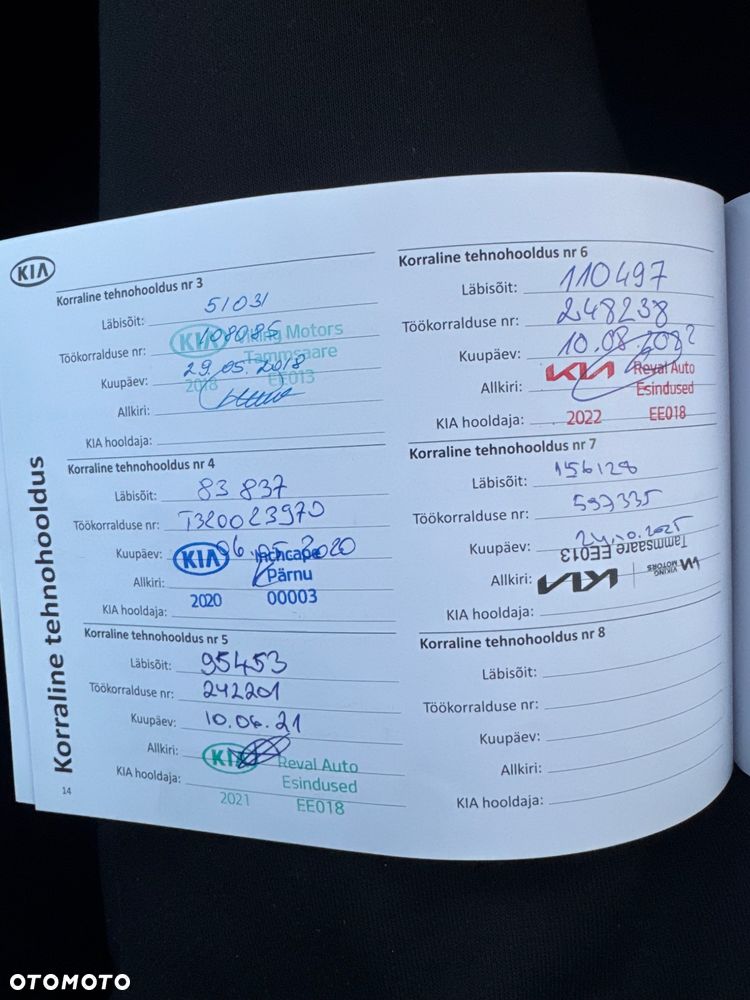 KIA
Korraline tehnohooldus
14
Korraline tehnohooldus nr 3
Läbisõit: 51031
Töökorralduse nr: 108085
Kuupäev: 29.05.2018
Allkiri:
KIA hooldaja:
KIA Viking Motors
Tammsaare
2018 EE013
Korraline tehnohooldus nr 4
Läbisõit: 83 837
Töökorralduse nr: T320023970
Kuupäev: 06.05.2020
Allkiri:
KIA hooldaja:
KIA Inchcape
Pärnu
2020 00003
Korraline tehnohooldus nr 5
Läbisõit: 95453
Töökorralduse nr: 242201
Kuupäev: 10.06.21
Allkiri:
KIA hooldaja:
KIA Reval Auto
Esindused
2021 EE018
Korraline tehnohooldus nr 6
Läbisõit: 110497
Töökorralduse nr: 248238
Kuupäev: 10.08.2022
Allkiri:
KIA hooldaja:
KIA Reval Auto
Esindused
2022 EE018
Korraline tehnohooldus nr 7
Läbisõit: 156128
Töökorralduse nr: 597335
Kuupäev: 24.10.2025
Allkiri:
KIA hooldaja:
VIKING MOTORS KIA
Tammsaare EE013
Korraline tehnohooldus nr 8
Läbisõit:
Töökorralduse nr:
Kuupäev:
Allkiri:
KIA hooldaja:
OTOMOTO